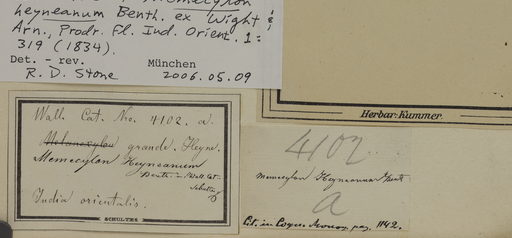 Memecylon
heyneanum Benth. ex Wight &
Arn., Prodr. Fl. Ind. Orient. 1:
319 (1834).
Det. - rev. München
R. D. Stone 2006.05.09
Herbar: Kummer.
Wall. Cat. No. 4102. a.
Melanoxylon grande. Heyne.
Memecylon Heyneanum
Benth. in Wall. Cat.
India orientalis.
SCHULTES
4102
Memecylon Heyneanum Benth
a
Cit. in Cogn. Monog. pag. 1142.